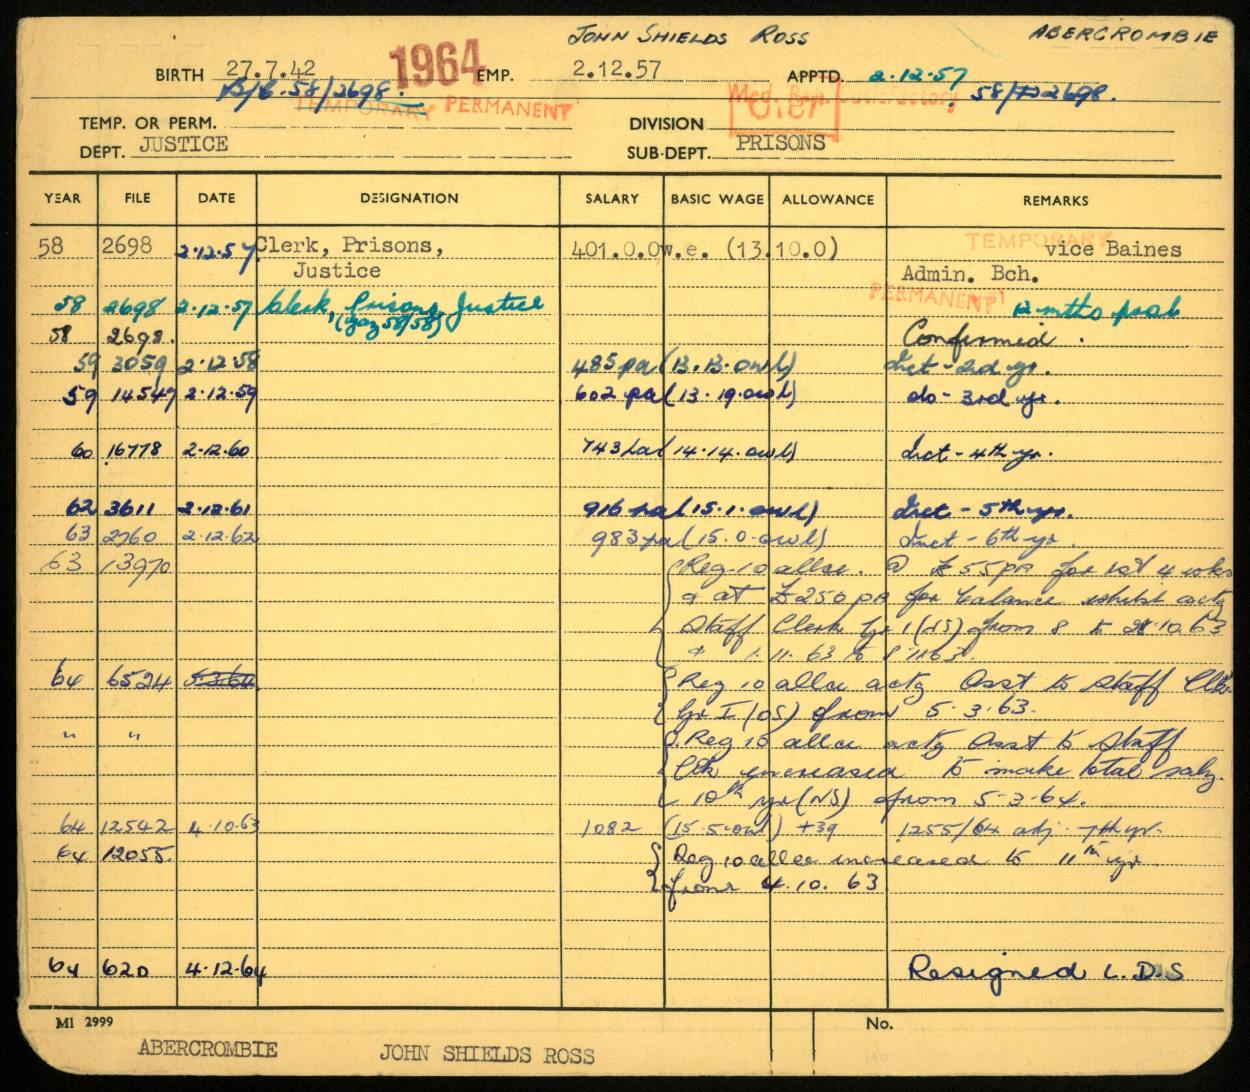 JOHN SHIELDS ROSS ABERCROMBIE
BIRTH 27.7.42 1964 EMP. 2.12.57 APPTD. 2.12.57
B/C. 58/2698. 58/2698.
TEMPORARY PERMANENT Med. Rep. Satisfactory
TEMP. OR PERM. DIVISION
DEPT. JUSTICE SUB-DEPT. PRISONS
YEAR FILE DATE DESIGNATION SALARY BASIC WAGE ALLOWANCE REMARKS
TEMPORARY
58 2698 2.12.57 Clerk, Prisons, 401.0.0 w.e. (13.10.0) vice Baines
Justice Admin. Bch.
PERMANENT
58 2698 2.12.57 Clerk, Prisons, Justice 12 mths prob
(gaz 58/58)
58 2698. Confirmed .
59 3059 2.12.58 485 pa (13.13.0wl) Inct - 2nd yr.
59 14547 2.12.59 602 pa (13.19.0wl) do - 3rd yr.
60 16778 2.12.60 743 pa (14.14.0wl) Inct - 4th yr.
62 3611 2.12.61 916 pa (15.1.0wl) Inct - 5th yr.
63 2760 2.12.62 983 pa (15.0.0wl) Inct - 6th yr.
63 13970 Reg 10 allce. @ £55 pa for 1st 4 wks
& at £250 pa for balance whilst actg
Staff Clerk Gr 1 (NS) from 8 to 10.63
& 1.11.63 to 8 11 63.
64 6524 5.3.64 Reg 10 allce actg Asst to Staff Clk.
Gr I (OS) from 5.3.63.
" " Reg 10 allce actg Asst to Staff
Clk increased to make total saly.
10th yr (NS) from 5-3-64.
64 12542 4.10.63 1082 (15.5.0wl) +39 1255/64 adj. 7th yr.
64 12055. Reg 10 allce increased to 11th yr
from 4.10.63
64 620 4.12.64 Resigned L.D.S
MI 2999 No.
ABERCROMBIE JOHN SHIELDS ROSS